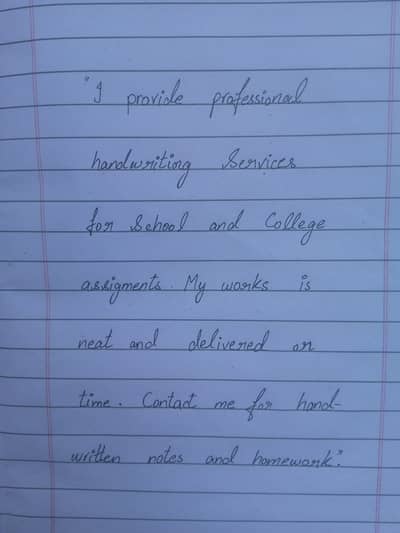 "I provide professional
handwriting Services
for School and College
assigments. My works is
neat and delivered on
time. Contact me for hand-
written notes and homework".